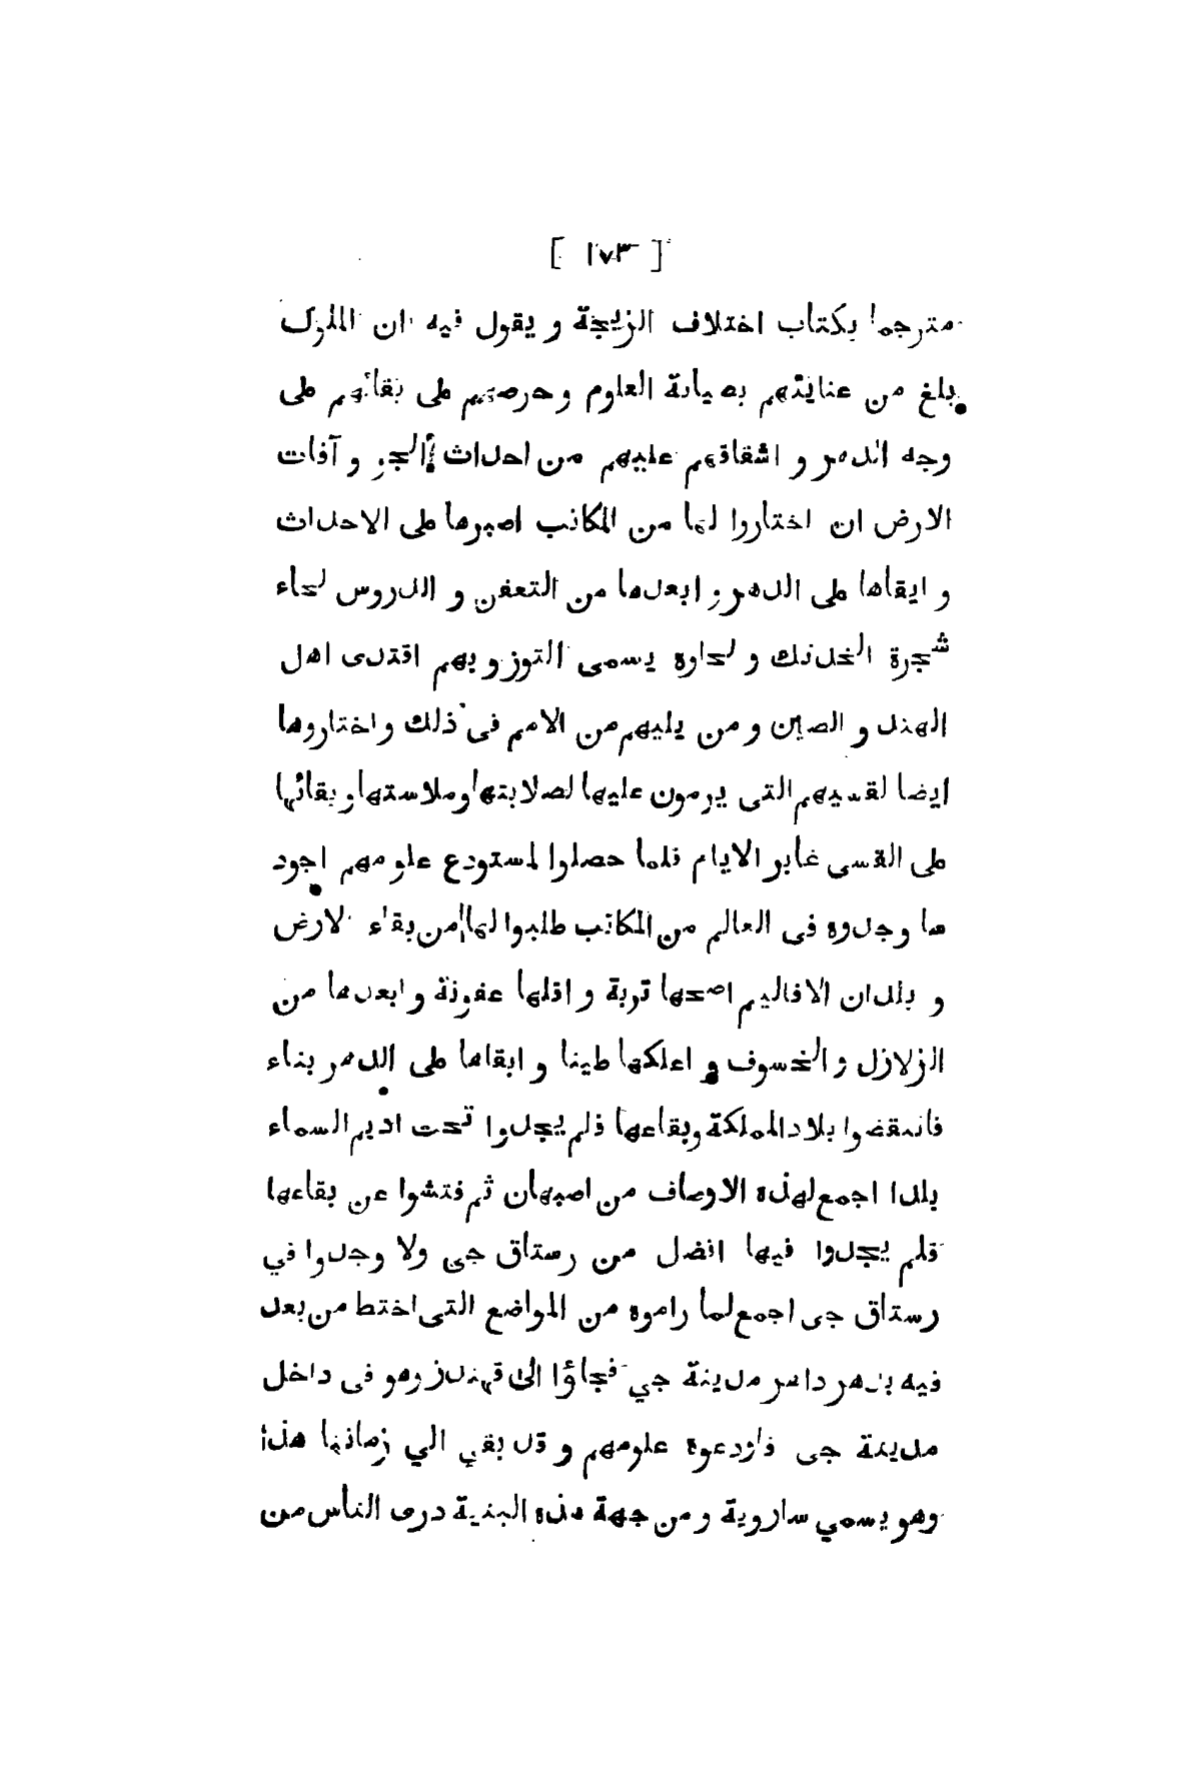 [ ١٧٣ ]
مترجما بكتاب اختلاف الزيجة و يقول فيه ان الملوك
بلغ من عنايتهم بصيانة العلوم و حرصهم على بقائهم على
وجه الدهر و اشفاقهم عليهم من احداث الجو و آفات
الارض ان اختاروا لها من المكاتب اصبرها على الاحداث
و ابقاها على الدهر و ابعدها من التعفن و الدروس لحاء
شجرة الخدنك و لحاوه يسمى التوز و بهم اقتدى اهل
الهند و الصين و من يليهم من الامم فى ذلك و اختاروها
ايضا لقسيهم التى يرمون عليها لصلابتها و ملاستها و بقائها
على القسى غابر الايام فلما حصلوا لمستودع علومهم اجود
ما وجدوه فى العالم من المكاتب طلبوا لها من بقاء الارض
و بلدان الاقاليم اصحها تربة و اقلها عفونة و ابعدها من
الزلازل و الخسوف و اعلكها طينا و ابقاها على الدهر بناء
فانتقضوا بلاد المملكة و بقاعها فلم يجدوا تحت اديم السماء
بلدا اجمع لهذه الاوصاف من اصبهان ثم فتشوا عن بقاعها
فلم يجدوا فيها افضل من رستاق جى ولا وجدوا في
رستاق جى اجمع لما راموه من المواضع التى اختط من بعد
فيه بدهر داهر مدينة جي فجاؤا الى قهندز وهو فى داخل
مدينة جى فاودعوه علومهم و قد بقي الي زماننا هذا
وهو يسمي ساروية و من جهة هذه البنية درى الناس من